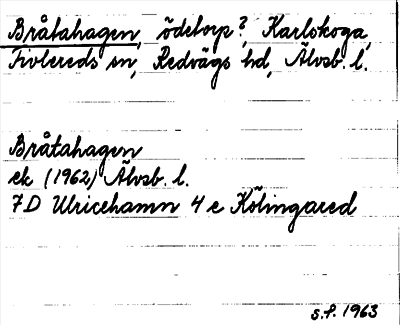 Bråtahagen, ödetorp?, Karlskoga,
Tivlereds sn, Redvägs hd, Älvsb. l.
Bråtahagen
ek (1962) Älvsb. l.
7D Ulricehamn 4 e Kölingared
s.f. 1963